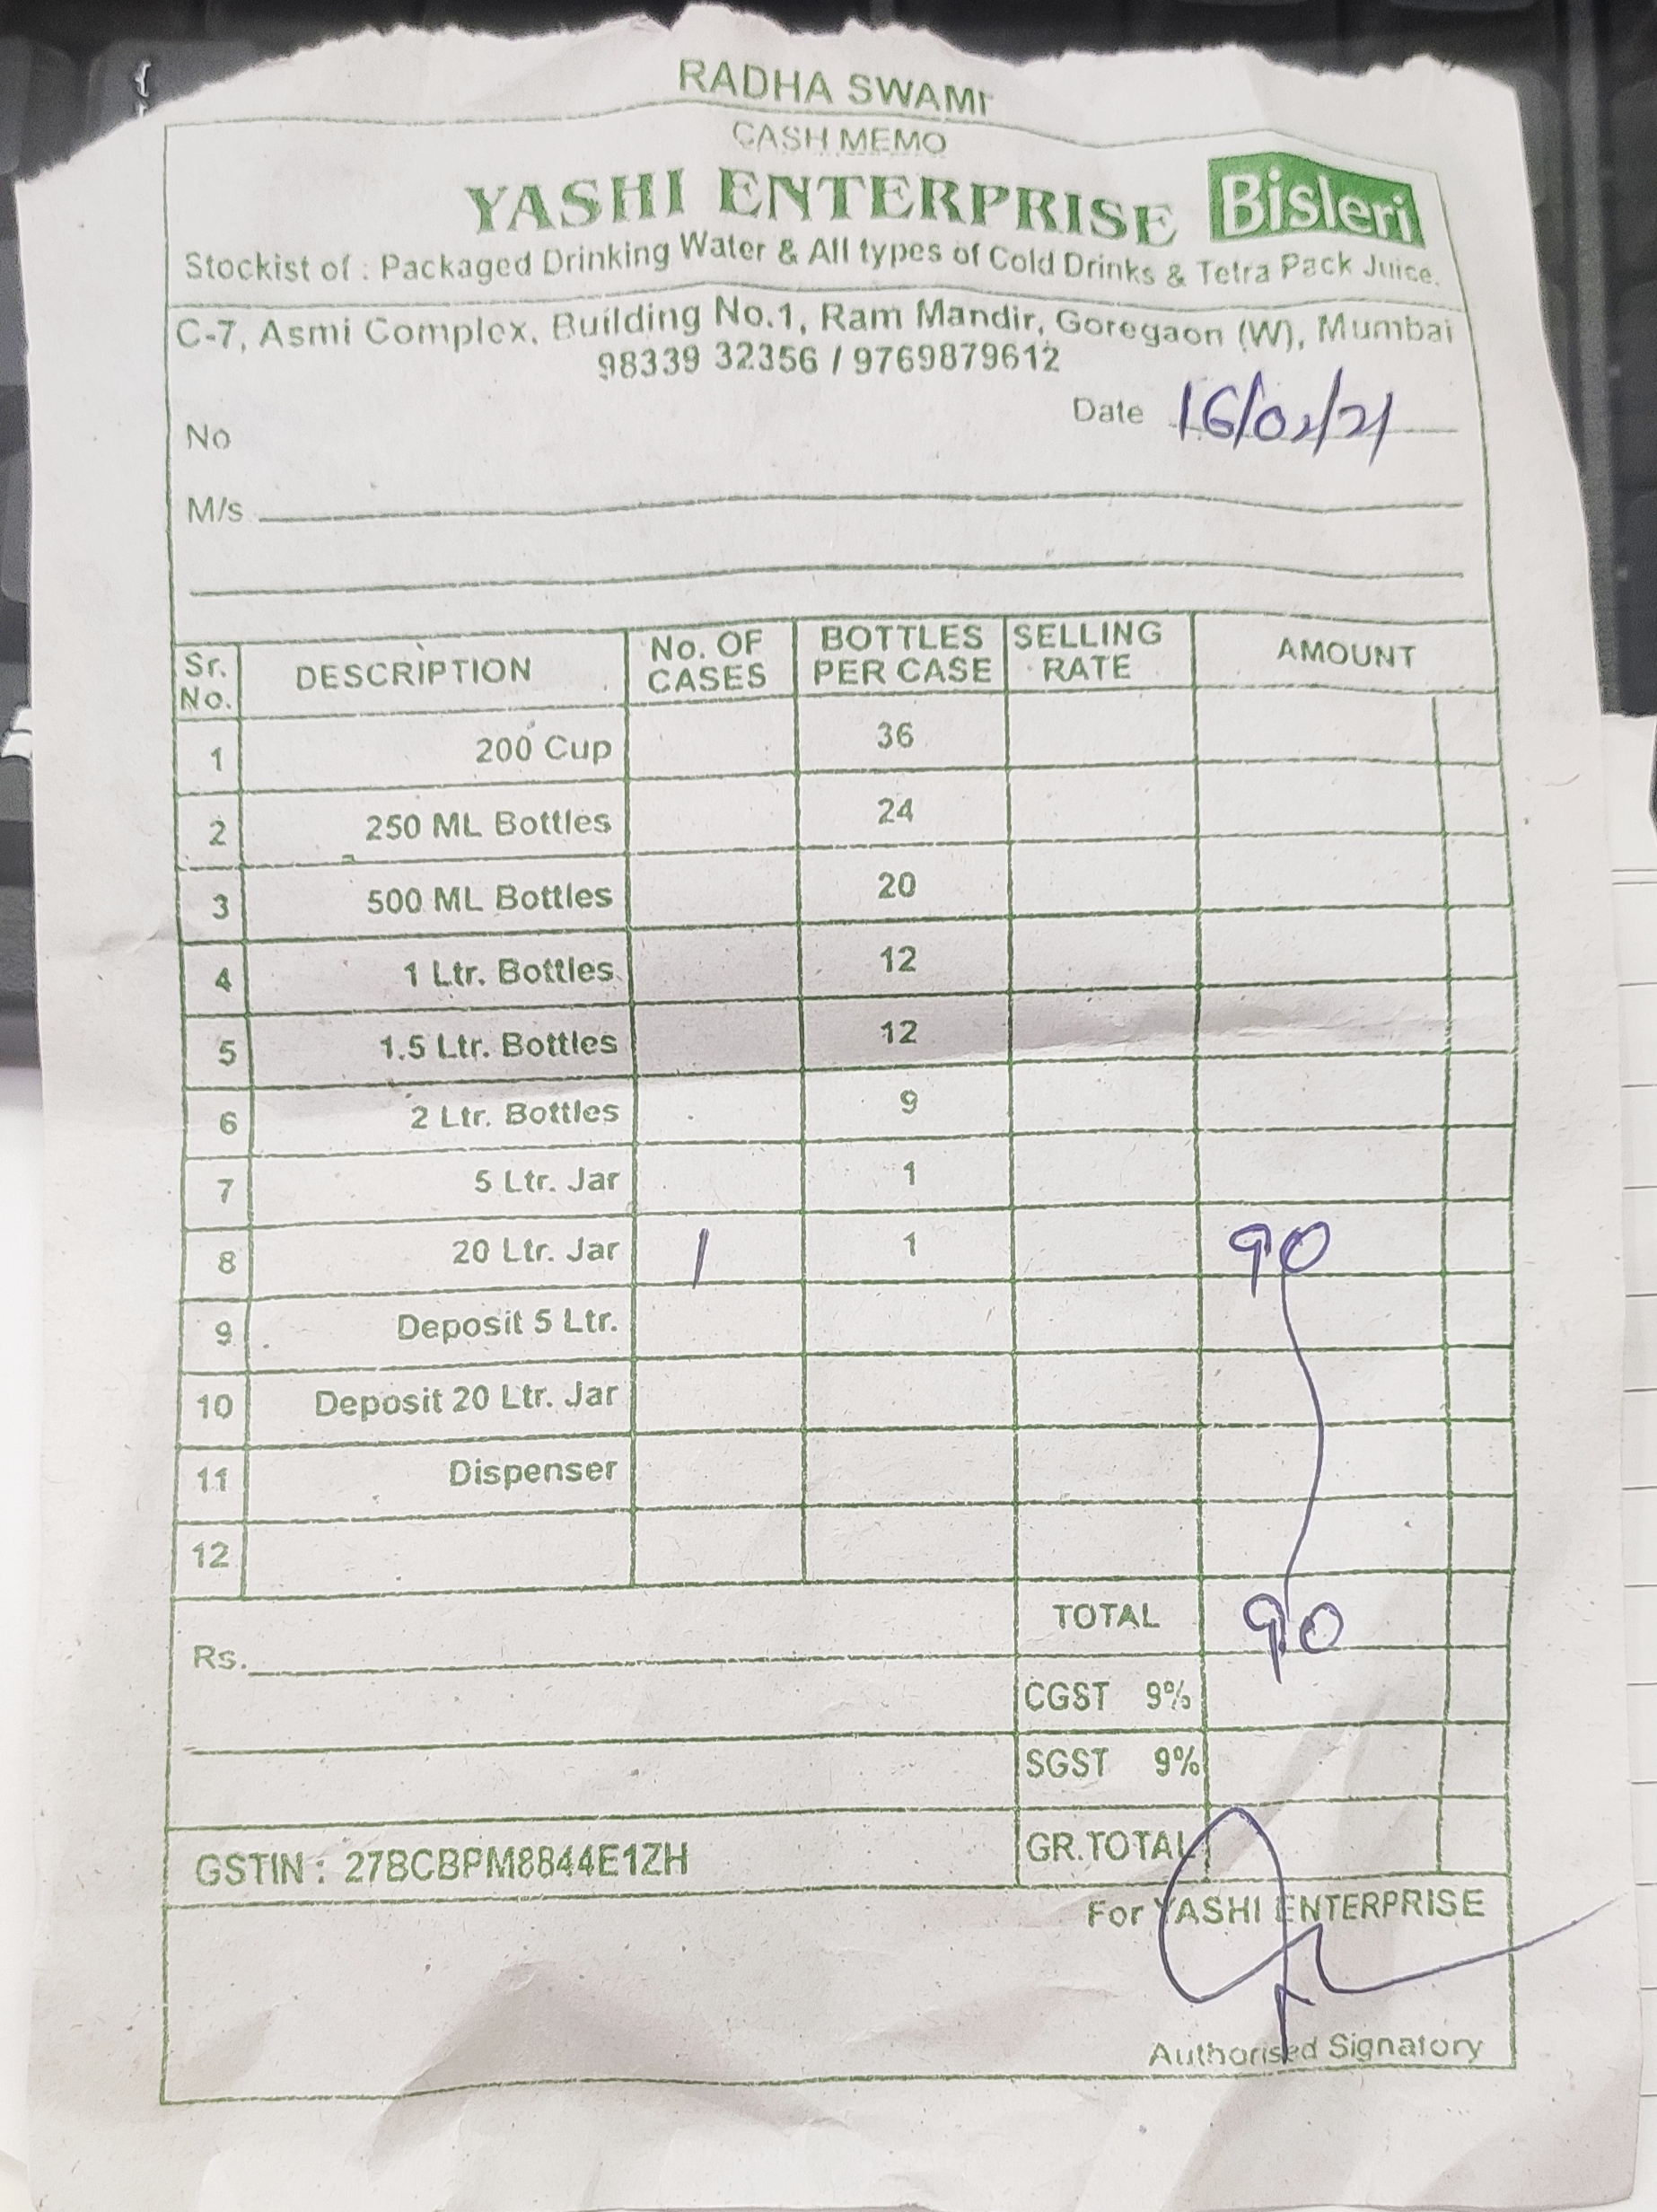 RADHA SWAMI
CASH MEMO
YASHI ENTERPRISE Bisleri
Stockist of : Packaged Drinking Water & All types of Cold Drinks & Tetra Pack Juice.
C-7, Asmi Complex, Building No.1, Ram Mandir, Goregaon (W), Mumbai
98339 32356 / 9769879612
No Date 16/02/21
M/s
Sr. No. DESCRIPTION No. OF CASES BOTTLES PER CASE SELLING RATE AMOUNT
1 200 Cup 36
2 250 ML Bottles 24
3 500 ML Bottles 20
4 1 Ltr. Bottles 12
5 1.5 Ltr. Bottles 12
6 2 Ltr. Bottles 9
7 5 Ltr. Jar 1
8 20 Ltr. Jar 1 1 90
9 Deposit 5 Ltr.
10 Deposit 20 Ltr. Jar
11 Dispenser
12
TOTAL 90
Rs.
CGST 9%
SGST 9%
GSTIN : 27BCBPM8844E1ZH GR.TOTAL
For YASHI ENTERPRISE
Authorised Signatory